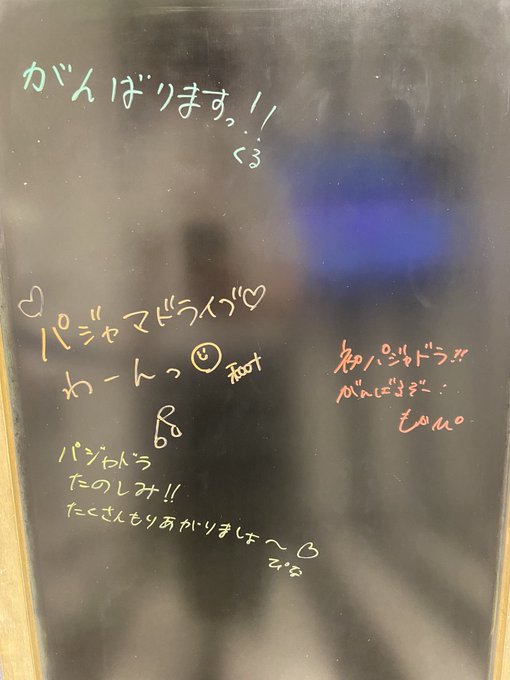 がんばりますっ!!
くる
♡パジャマドライブ♡
わーんっ
パジャドラ
たのしみ!!
たくさんもりあがりましょ〜♡
ぴな
初パジャドラ!!
がんばるぞー!